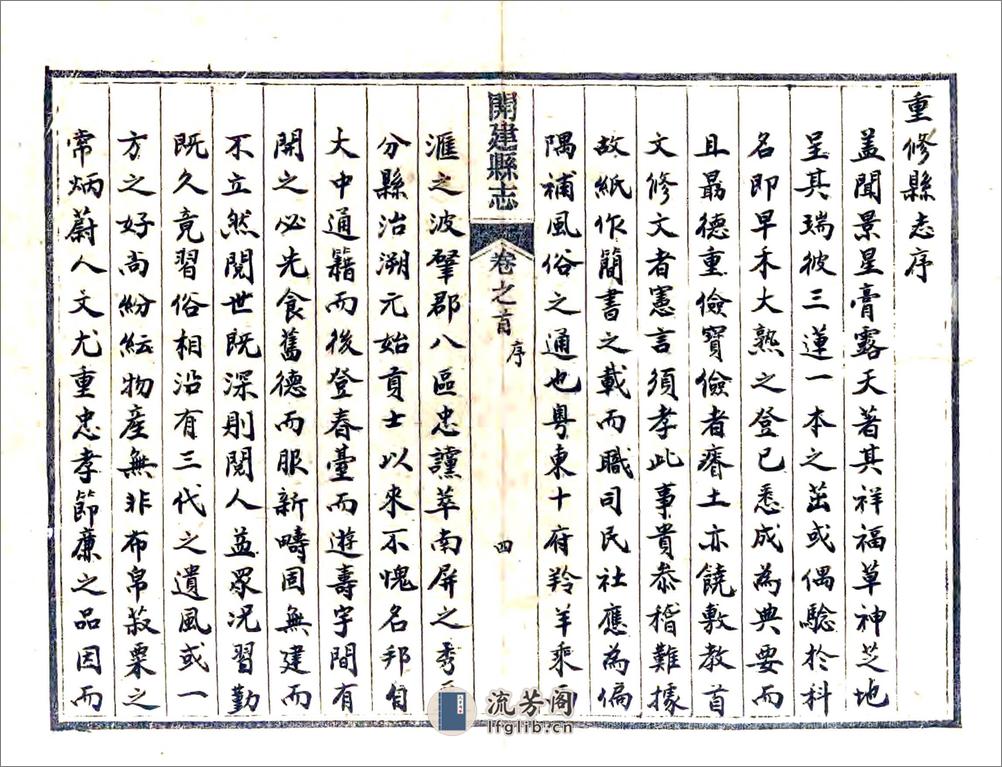 重修縣志序
蓋聞景星膏露天著其祥福草神芝地
呈其瑞彼三蓮一本之茁或偶驗於科
名即早禾大熟之登已悉成為典要而
且勗德重儉寶儉者瘠土亦饒敷教首
文修文者憲言須孝此事貴叅稽難據
故紙作簡書之載而職司民社應為偏
隅補風俗之通也粵東十府羚羊乘
開建縣志 卷之首 序 四
滙之波肇郡八區忠讜萃南屏之秀
分縣治溯元始貢士以來不愧名邦自
大中通籍而後登春臺而遊壽宇間有
開之必先食舊德而服新疇固無建而
不立然閱世既深則閱人益眾况習勤
既久竟習俗相沿有三代之遺風或一
方之好尚紛紜物產無非布帛菽粟之
常炳蔚人文尤重忠孝節廉之品因而
流芳阁
lfglib.cn